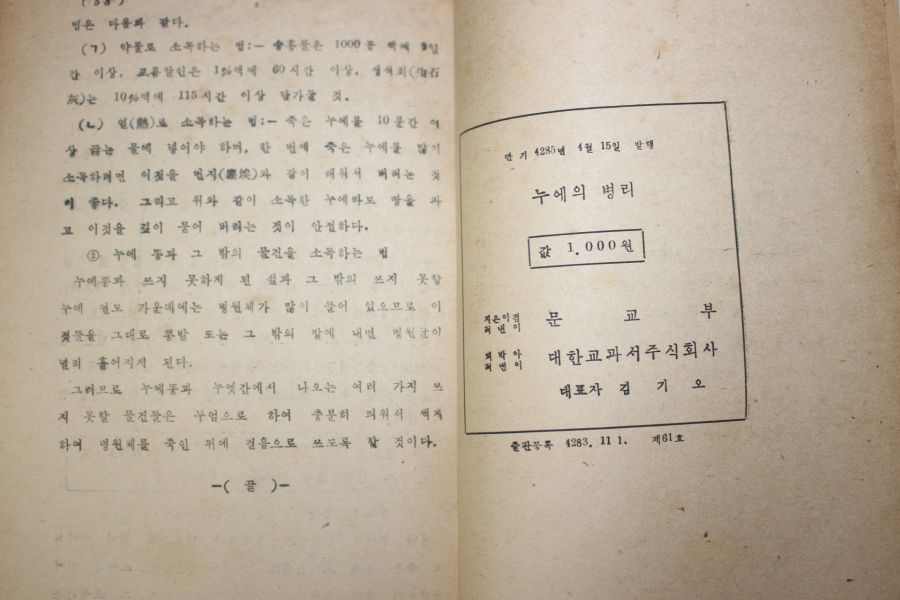 (58)
법은 다음과 같다.
(ㄱ) 약물로 소독하는 법:— 승홍물은 1000풀 액에 2일
간 이상, 포름알인은 1%액에 60시간 이상, 생석회(生石
灰)는 10%액에 115시간 이상 담가둘 것.
(ㄴ) 열(熱)로 소독하는 법:— 죽은 누에를 10분간 이
상 끓는 물에 넣어야 하며, 한 번에 죽은 누에를 많이
소독하려면 이것을 먼지(塵埃)와 같이 태워서 버리는 것
이 좋다. 그리고 위와 같이 소독한 누에라도 땅을 파
고 이것을 깊이 묻어 버리는 것이 안전하다.
② 누에 똥과 그 밖의 물건을 소독하는 법
누에똥과 쓰지 못하게 된 섶과 그 밖의 쓰지 못할
누에 연모 가운데에는 병원체가 많이 들어 있으므로 이
것들을 그대로 뽕밭 또는 그 밖의 밭에 내면 병원균이
널리 흩어지게 된다.
그러므로 누에똥과 누엣간에서 나오는 여러 가지 쓰
지 못할 물건들은 두엄으로 하여 충분히 띄워서 썩게
하여 병원체를 죽인 뒤에 걸음으로 쓰도록 할 것이다.
—( 끝 )—
단기 4285년 4월 15일 발행
누에의 병리
값 1.000원
지은이겸
펴낸이 문교부
찍어
펴낸이 대한교과서주식회사
대표자 김기오
출판등록 4283. 11 1. 제61호